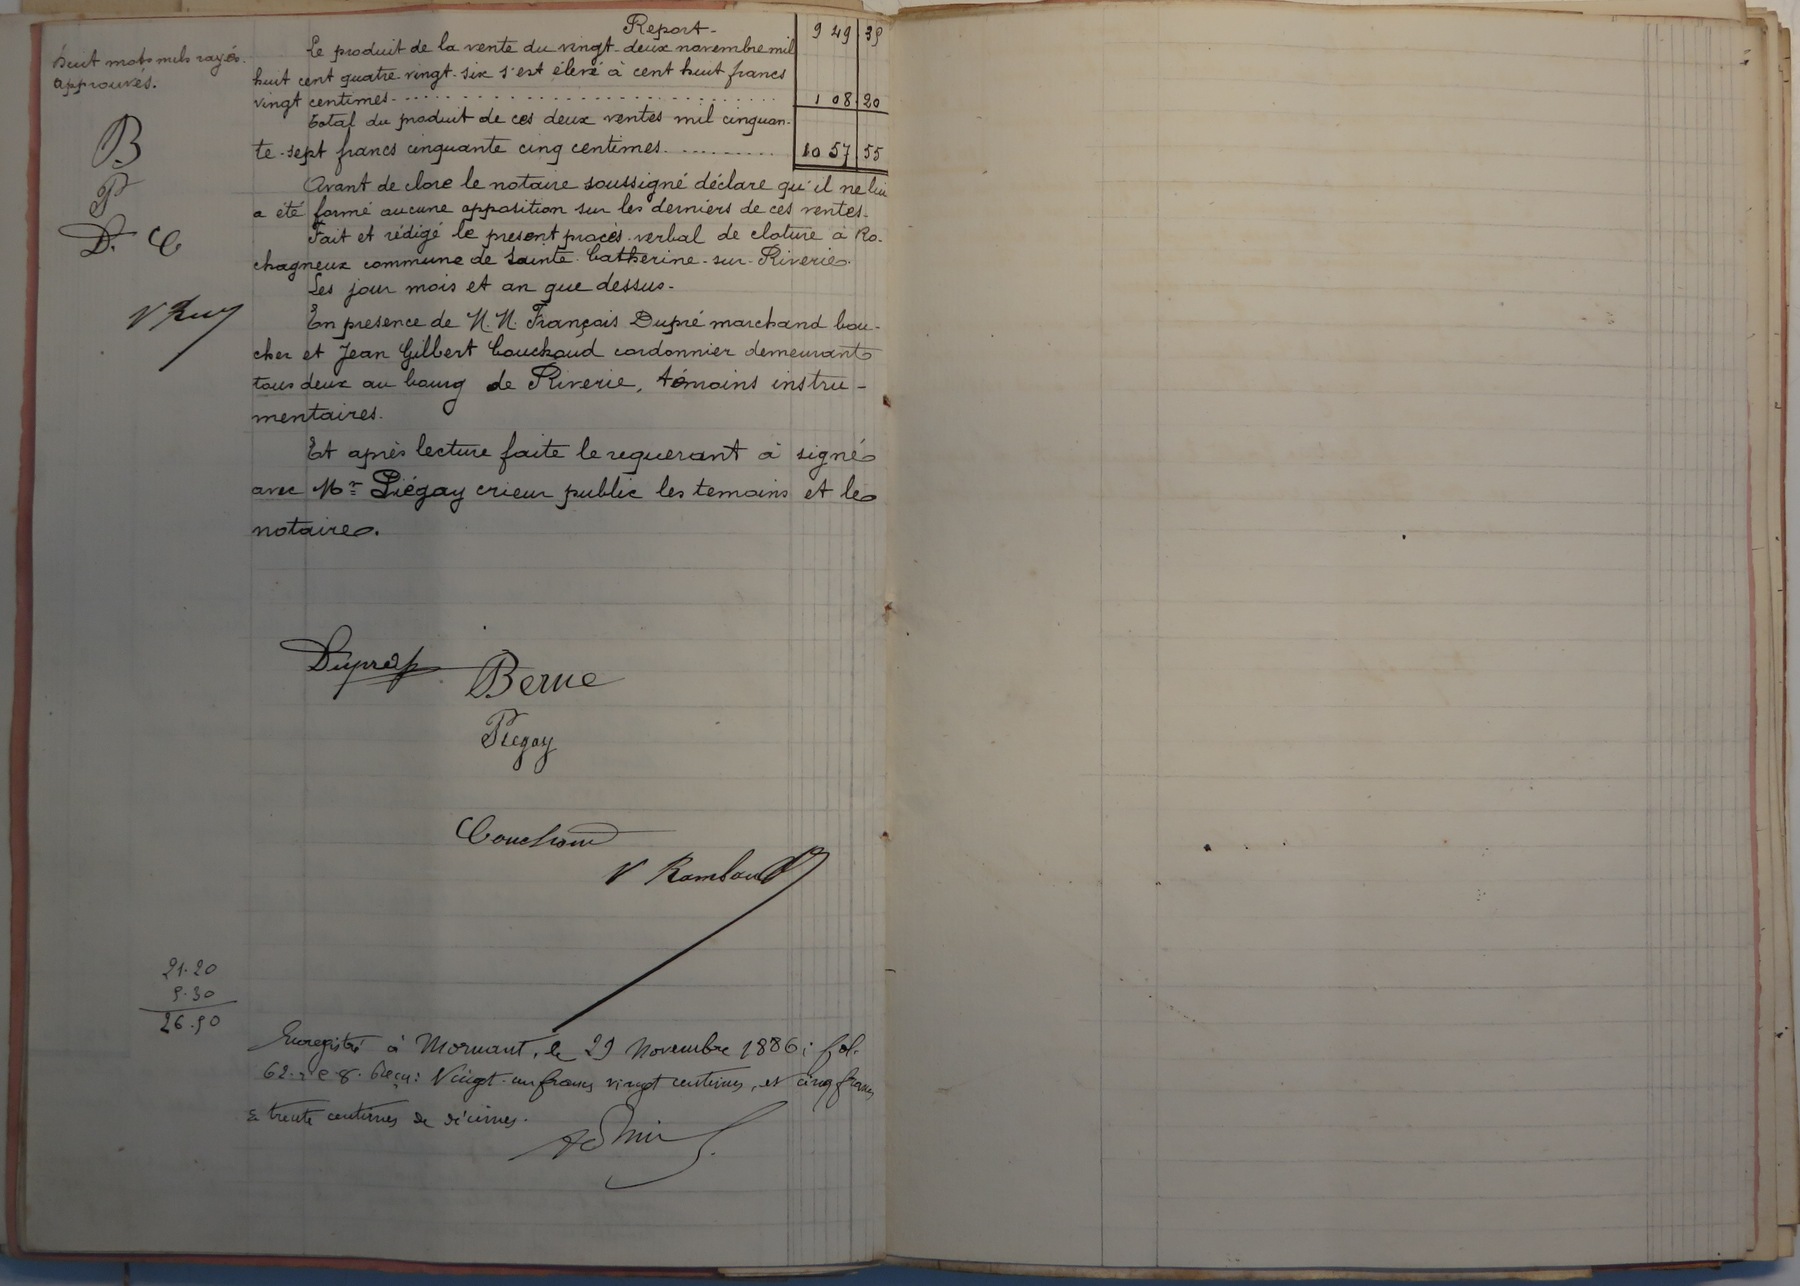 huit mots nuls rayés
approuvés.
B
P
D. C
V Ray
Report - 949 . 35
Le produit de la vente du vingt-deux novembre mil
huit cent quatre vingt-six s'est élevé à cent huit francs
vingt centimes. 108.20
Total du produit de ces deux ventes mil cinquan-
te-sept francs cinquante cinq centimes. 1057 55
Avant de clore le notaire soussigné déclare qu'il ne lui
a été formé aucune opposition sur les derniers de ces ventes.
Fait et rédigé le present procès-verbal de cloture à Ro-
chagneux commune de Sainte-Catherine-sur-Riverie.
Les jour mois et an que dessus.
En presence de M.M. François Dupré marchand bou-
cher et Jean Gilbert Couchoud cordonnier demeurant
tous deux au bourg de Riverie, témoins instru-
mentaires.
Et après lecture faite le requerant à signé
avec Mr Piégay crieur public les temoins et le
notaire.
Dupré Berne
Piégay
Couchoud
V Rambaud
21.20
5.30
26.50
Enregistré à Mornant, le 29 Novembre 1886; fol.
62. c. 8. Reçu: Vingt-un francs vingt centimes, et cinq francs
& trente centimes de décimes.